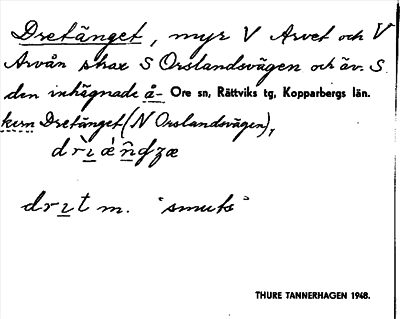 Dretänget, myr V Arvet och V
Arvån strax S Orslandsvägen och äv. S
den inhägnade å- Ore sn, Rättviks tg, Kopparbergs län.
kern Dretänget (N Orslandsvägen),
drit m. "smuts"
THURE TANNERHAGEN 1948.